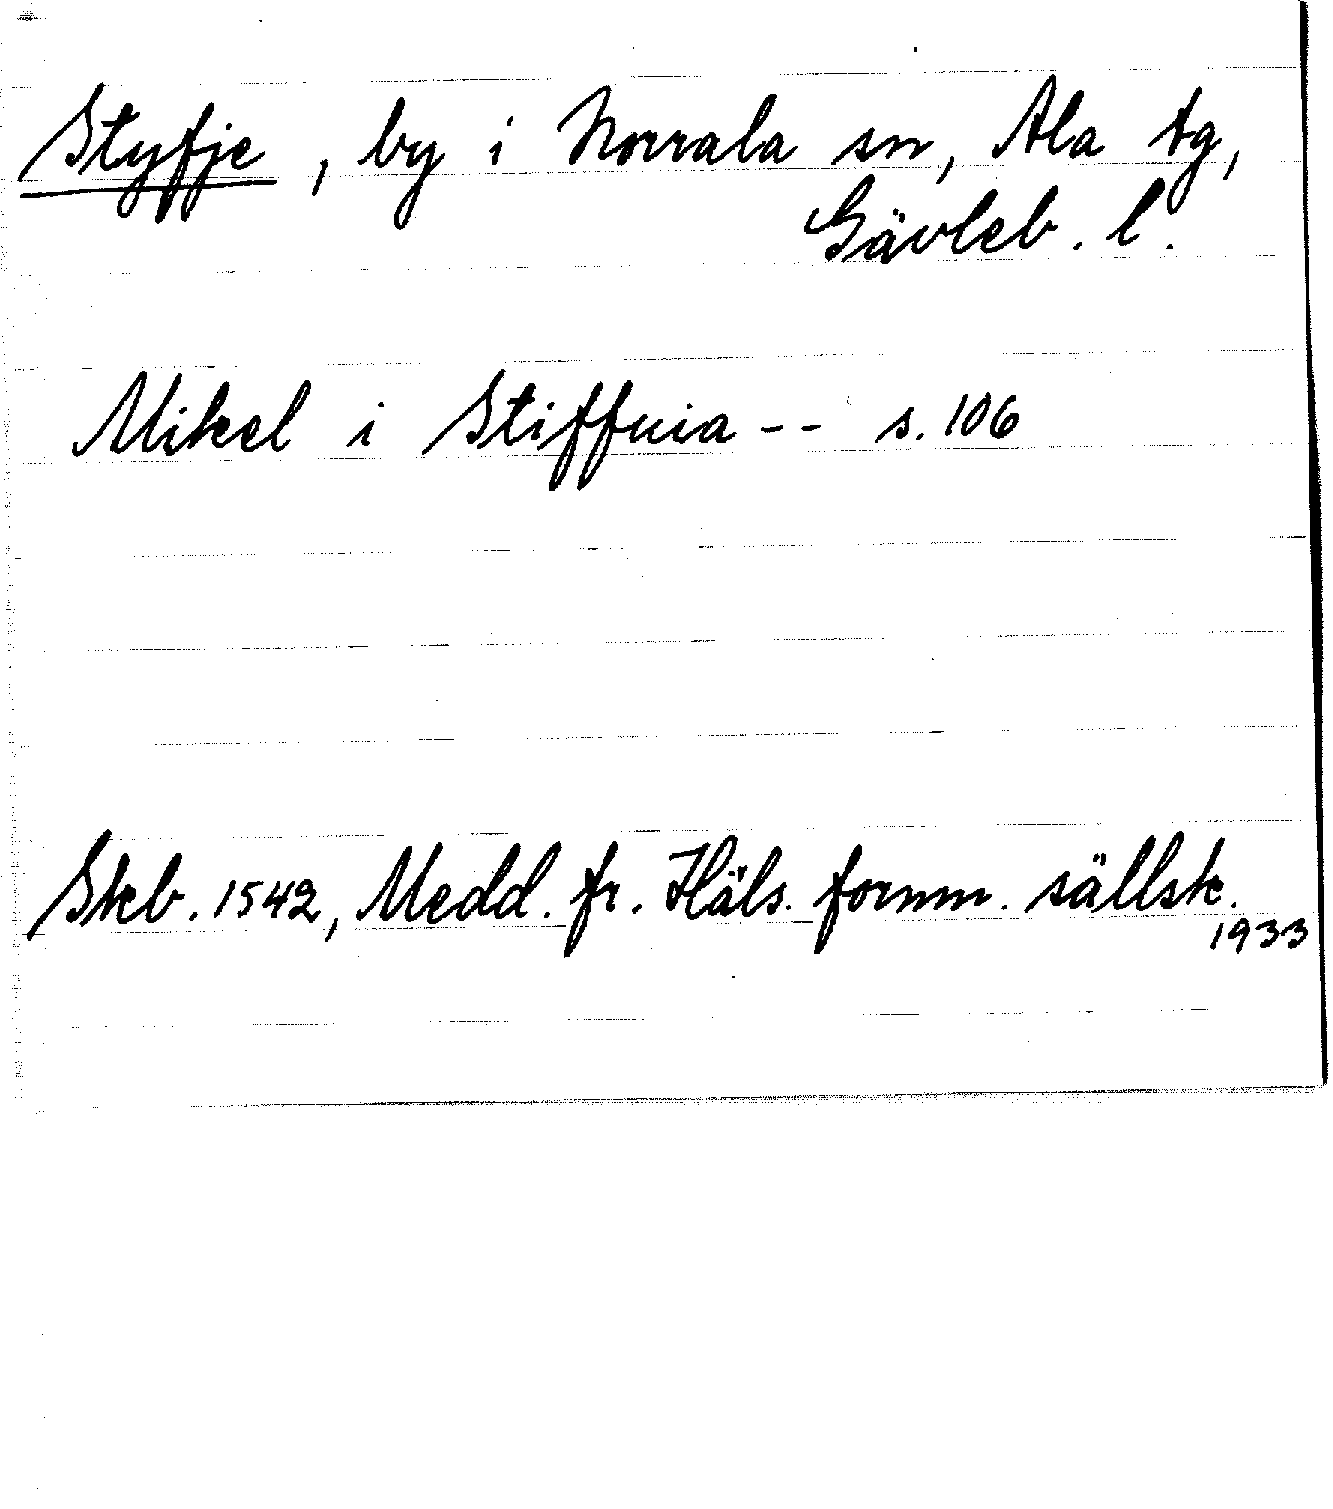 Styfje, by i Norrala sn, Ala tg,
Gävleb. l.
Mikel i Stiffuia -- s. 106
Skb. 1542, Medd. fr. Häls. fornm. sällsk.
1933